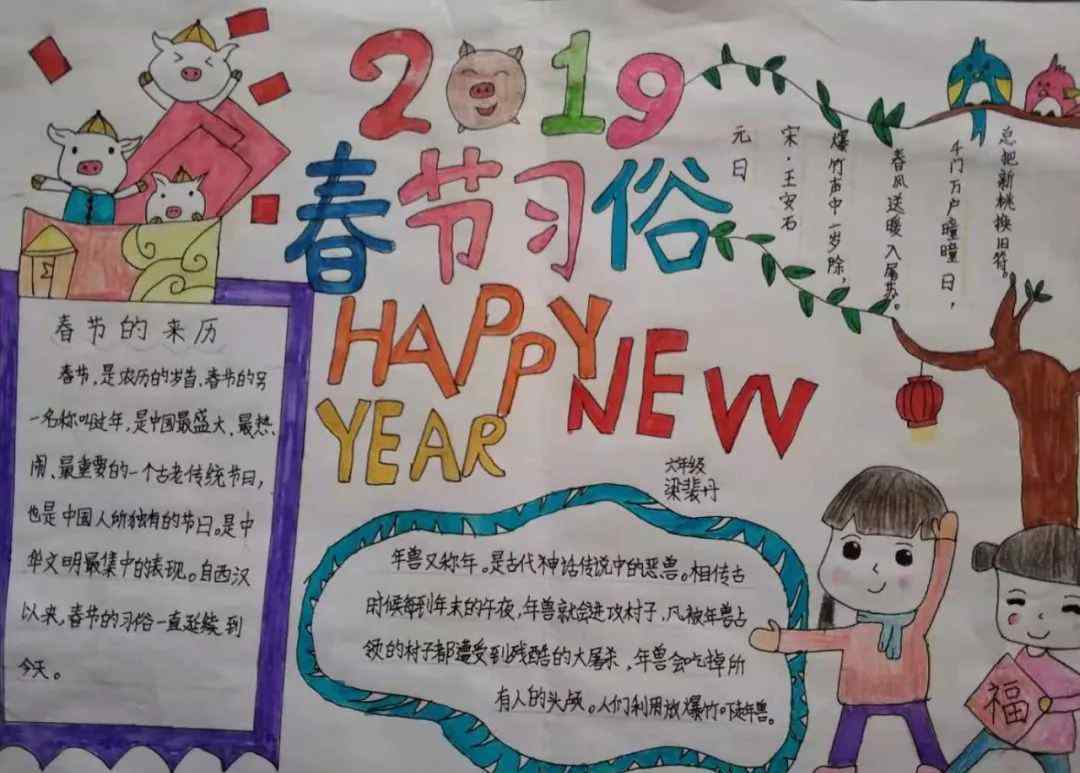 2019
春节习俗
HAPPY NEW
YEAR
六年级
梁裴丹
元日
宋·王安石
爆竹声中一岁除,
春风送暖入屠苏。
千门万户曈曈日,
总把新桃换旧符。
春节的来历
春节,是农历的岁首,春节的另
一名称叫过年,是中国最盛大、最热
闹、最重要的一个古老传统节日,
也是中国人所独有的节日。是中
华文明最集中的表现。自西汉
以来,春节的习俗一直延续到
今天。
年兽又称年。是古代神话传说中的恶兽。相传古
时候每到年末的午夜,年兽就会进攻村子,凡被年兽占
领的村子都遭受到残酷的大屠杀,年兽会吃掉所
有人的头颅。人们利用放爆竹。年兽。
福